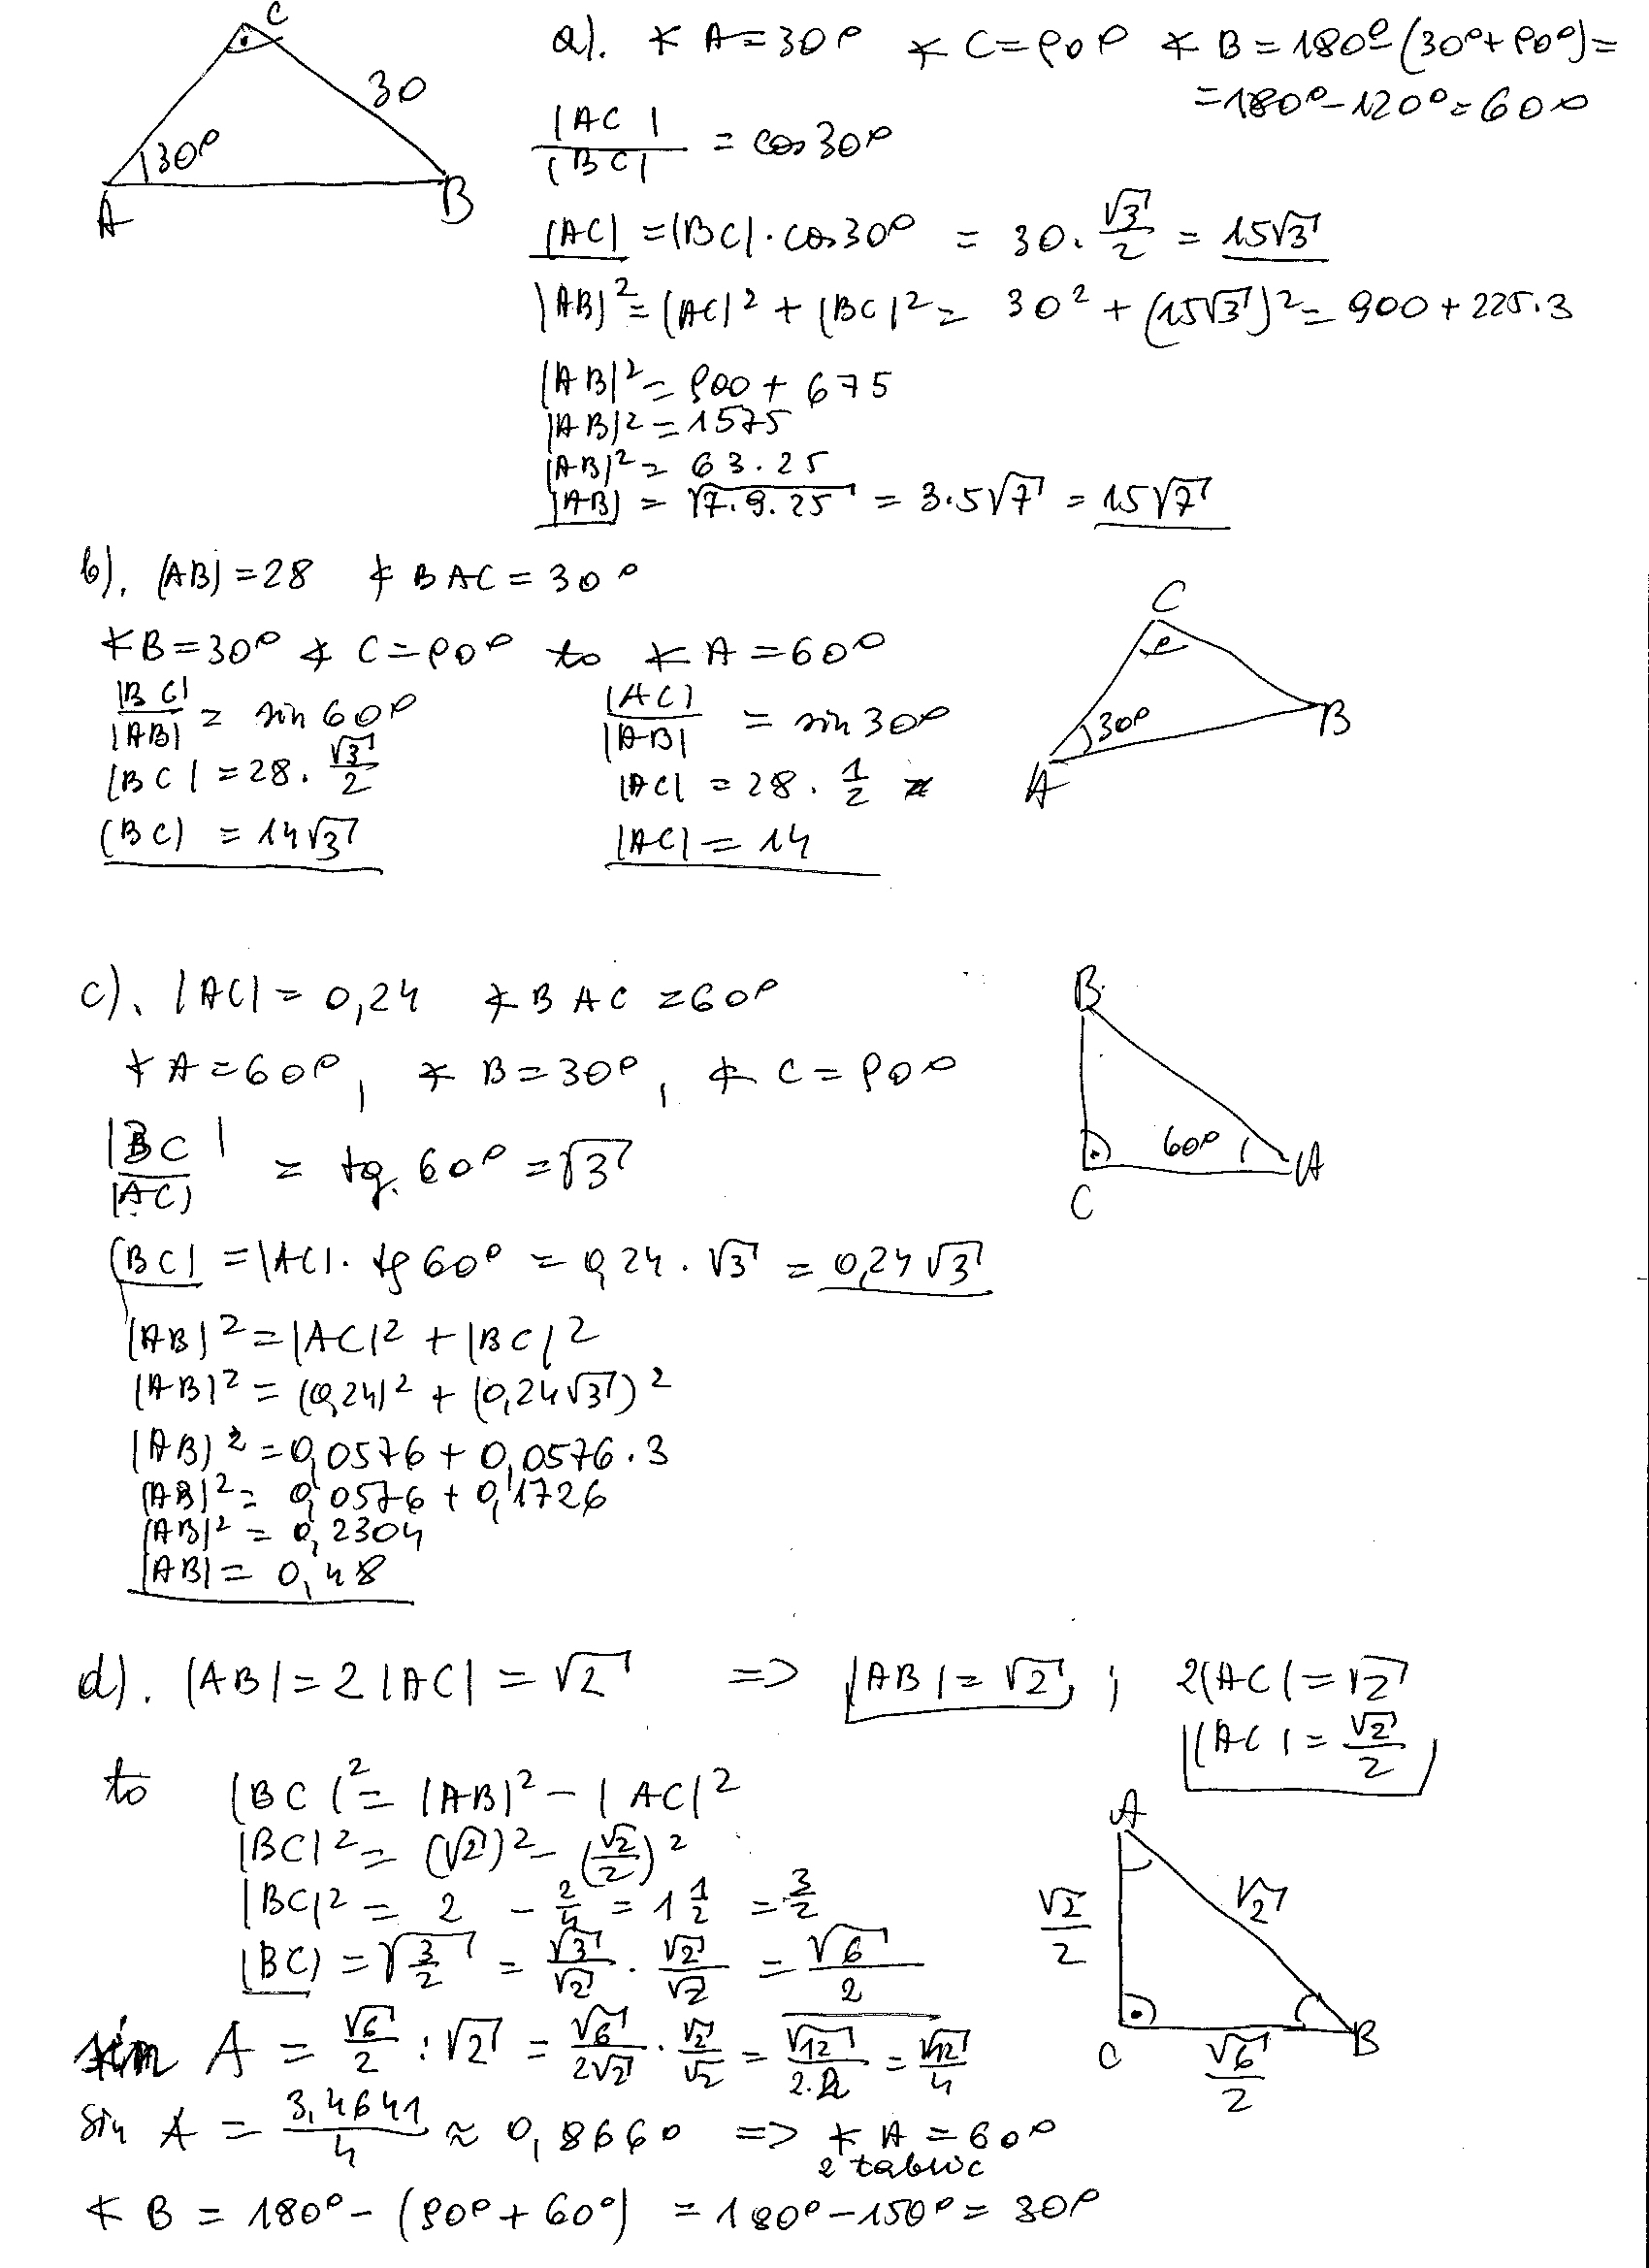 C
30
30°
A
B
a). ∢ A=30° ∢ C=90° ∢ B=180°-(30°+90°)=
=180°-120°=60°
|AC|/|BC| = cos30°
|AC| = |BC|·cos30° = 30·√3/2 = 15√3
|AB|²=|AC|²+|BC|²= 30²+(15√3)²= 900+225·3
|AB|²=900+675
|AB|²=1575
|AB|²= 63·25
|AB| = √7·9·25 = 3·5√7 = 15√7
b). |AB|=28 ∢ BAC=30°
∢B=30° ∢ C=90° to ∢ A=60°
|BC|/|AB| = sin 60°
|BC|=28·√3/2
|BC| = 14√3
|AC|/|AB| = sin30°
|AC| = 28·1/2
|AC|=14
C
30°
A
B
c). |AC|=0,24 ∢ BAC=60°
∢ A=60°, ∢ B=30°, ∢ C=90°
|BC|/|AC| = tg. 60°=√3
|BC| =|AC|·tg60° = 0,24·√3 = 0,24√3
|AB|²=|AC|²+|BC|²
|AB|²=(0,24)²+(0,24√3)²
|AB|²=0,0576+0,0576·3
|AB|²=0,0576+0,1726
|AB|²=0,2304
|AB|=0,48
B
60°
C
A
d). |AB|=2|AC|=√2 => |AB|=√2 ; 2|AC|=√2
|AC|=√2/2
to |BC|²=|AB|²-|AC|²
|BC|²=(√2)²-(√2/2)²
|BC|²= 2 - 2/4 = 1 1/2 = 3/2
|BC|=√3/2 = √3/√2 · √2/√2 = √6/2
sin A = √6/2 : √2 = √6/2√2 · √2/√2 = √12/2·2 = √12/4
sin A = 3,4641/4 ≈ 0,8660 => ∢ A=60°
z tablic
∢ B = 180°-(90°+60°) = 180°-150°= 30°
A
√2/2
√2
C
√6/2
B